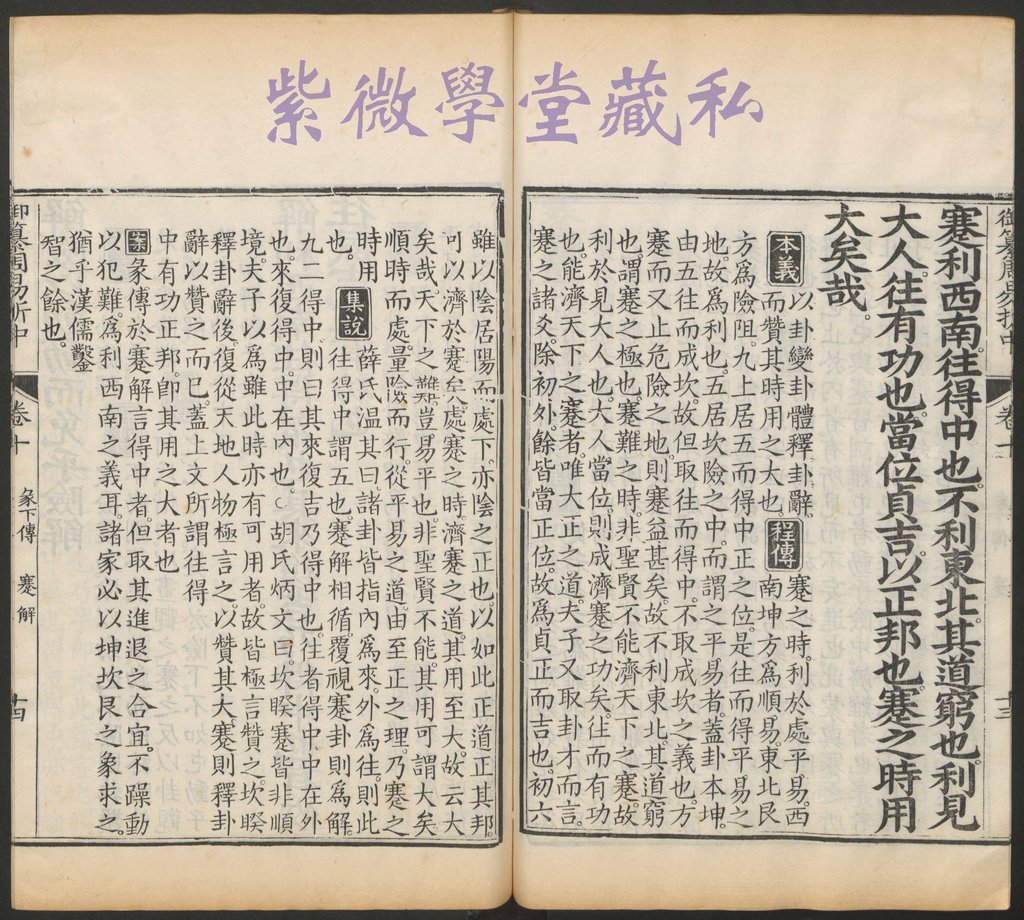 紫微學堂藏私
御纂周易折中 卷十 十三
蹇利西南。往得中也。不利東北。其道窮也。利見
大人。往有功也。當位貞吉。以正邦也。蹇之時用
大矣哉。
本義 以卦變卦體釋卦辭。
而贊其時用之大也。
程傳 蹇之時。利於處平易。西
南坤方爲順易。東北艮
方爲險阻。九上居五而得中正之位。是往而得平易之
地。故爲利也。五居坎險之中。而謂之平易者。蓋卦本坤。
由五往而成坎。故但取往而得中。不取成坎之義也。方
蹇而又止危險之地。則蹇益甚矣。故不利東北。其道窮
也。謂蹇之極也。蹇難之時。非聖賢不能濟天下之蹇。故
利於見大人也。大人當位。則成濟蹇之功矣。往而有功
也。能濟天下之蹇者。唯大正之道。夫子又取卦才而言。
蹇之諸爻。除初外。餘皆當正位。故爲貞正而吉也。初六
雖以陰居陽而處下。亦陰之正也。以如此正道正其邦。
可以濟於蹇矣。處蹇之時。濟蹇之道。其用至大。故云大
矣哉。天下之難。豈易平也。非聖賢不能。其用可謂大矣
順時而處。量險而行。從平易之道。由至正之理。乃蹇之
時用
也。
集說 薛氏溫其曰諸卦皆指內爲來。外爲往。則此
往得中。謂五也。蹇解相循。覆視蹇卦則爲解。
九二得中。則曰其來復吉。乃得中也。往者得中。中在外
也。來復得中。中在內也。○胡氏炳文曰。坎睽蹇皆非順
境。夫子以爲雖此時亦有可用者。故皆極言贊之。坎睽
釋卦辭後。復從天地人物極言之。以贊其大。蹇則釋卦
辭以贊之而巳。蓋上文所謂往得
中有功正邦。卽其用之大者也
案 彖傳於蹇解言得中者。但取其進退之合宜。不躁動
以犯難。爲利西南之義耳。諸家必以坤坎艮之象求之。
猶乎漢儒鑿
智之餘也。
御纂周易折中 卷十 彖下傳 蹇 解 十四